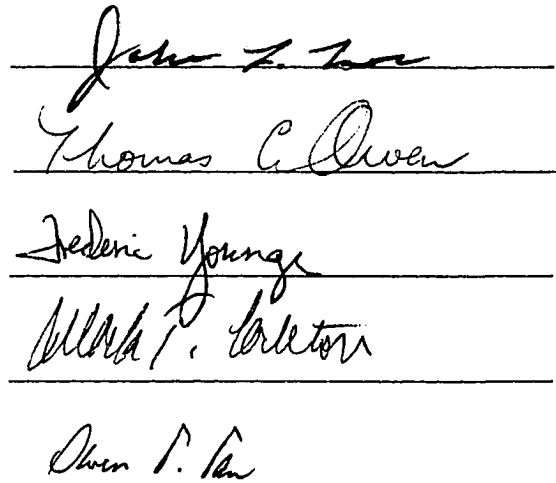 John L. Loos
Thomas C. Owen
Frederic Youngs
Mark T. Carleton